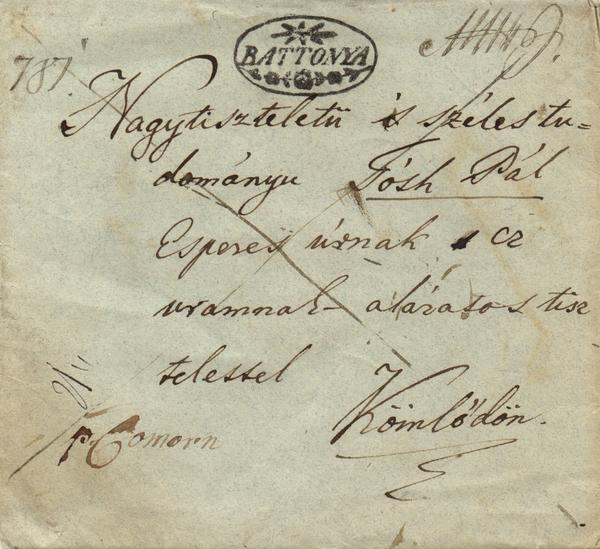 BATTONYA
787
Nagytiszteletü és széles tu=
dományu Tósh Pál
Esperes úrnak s cz
uramnak alázatos tisz
telessel
Kömlődön.
p. Comorn